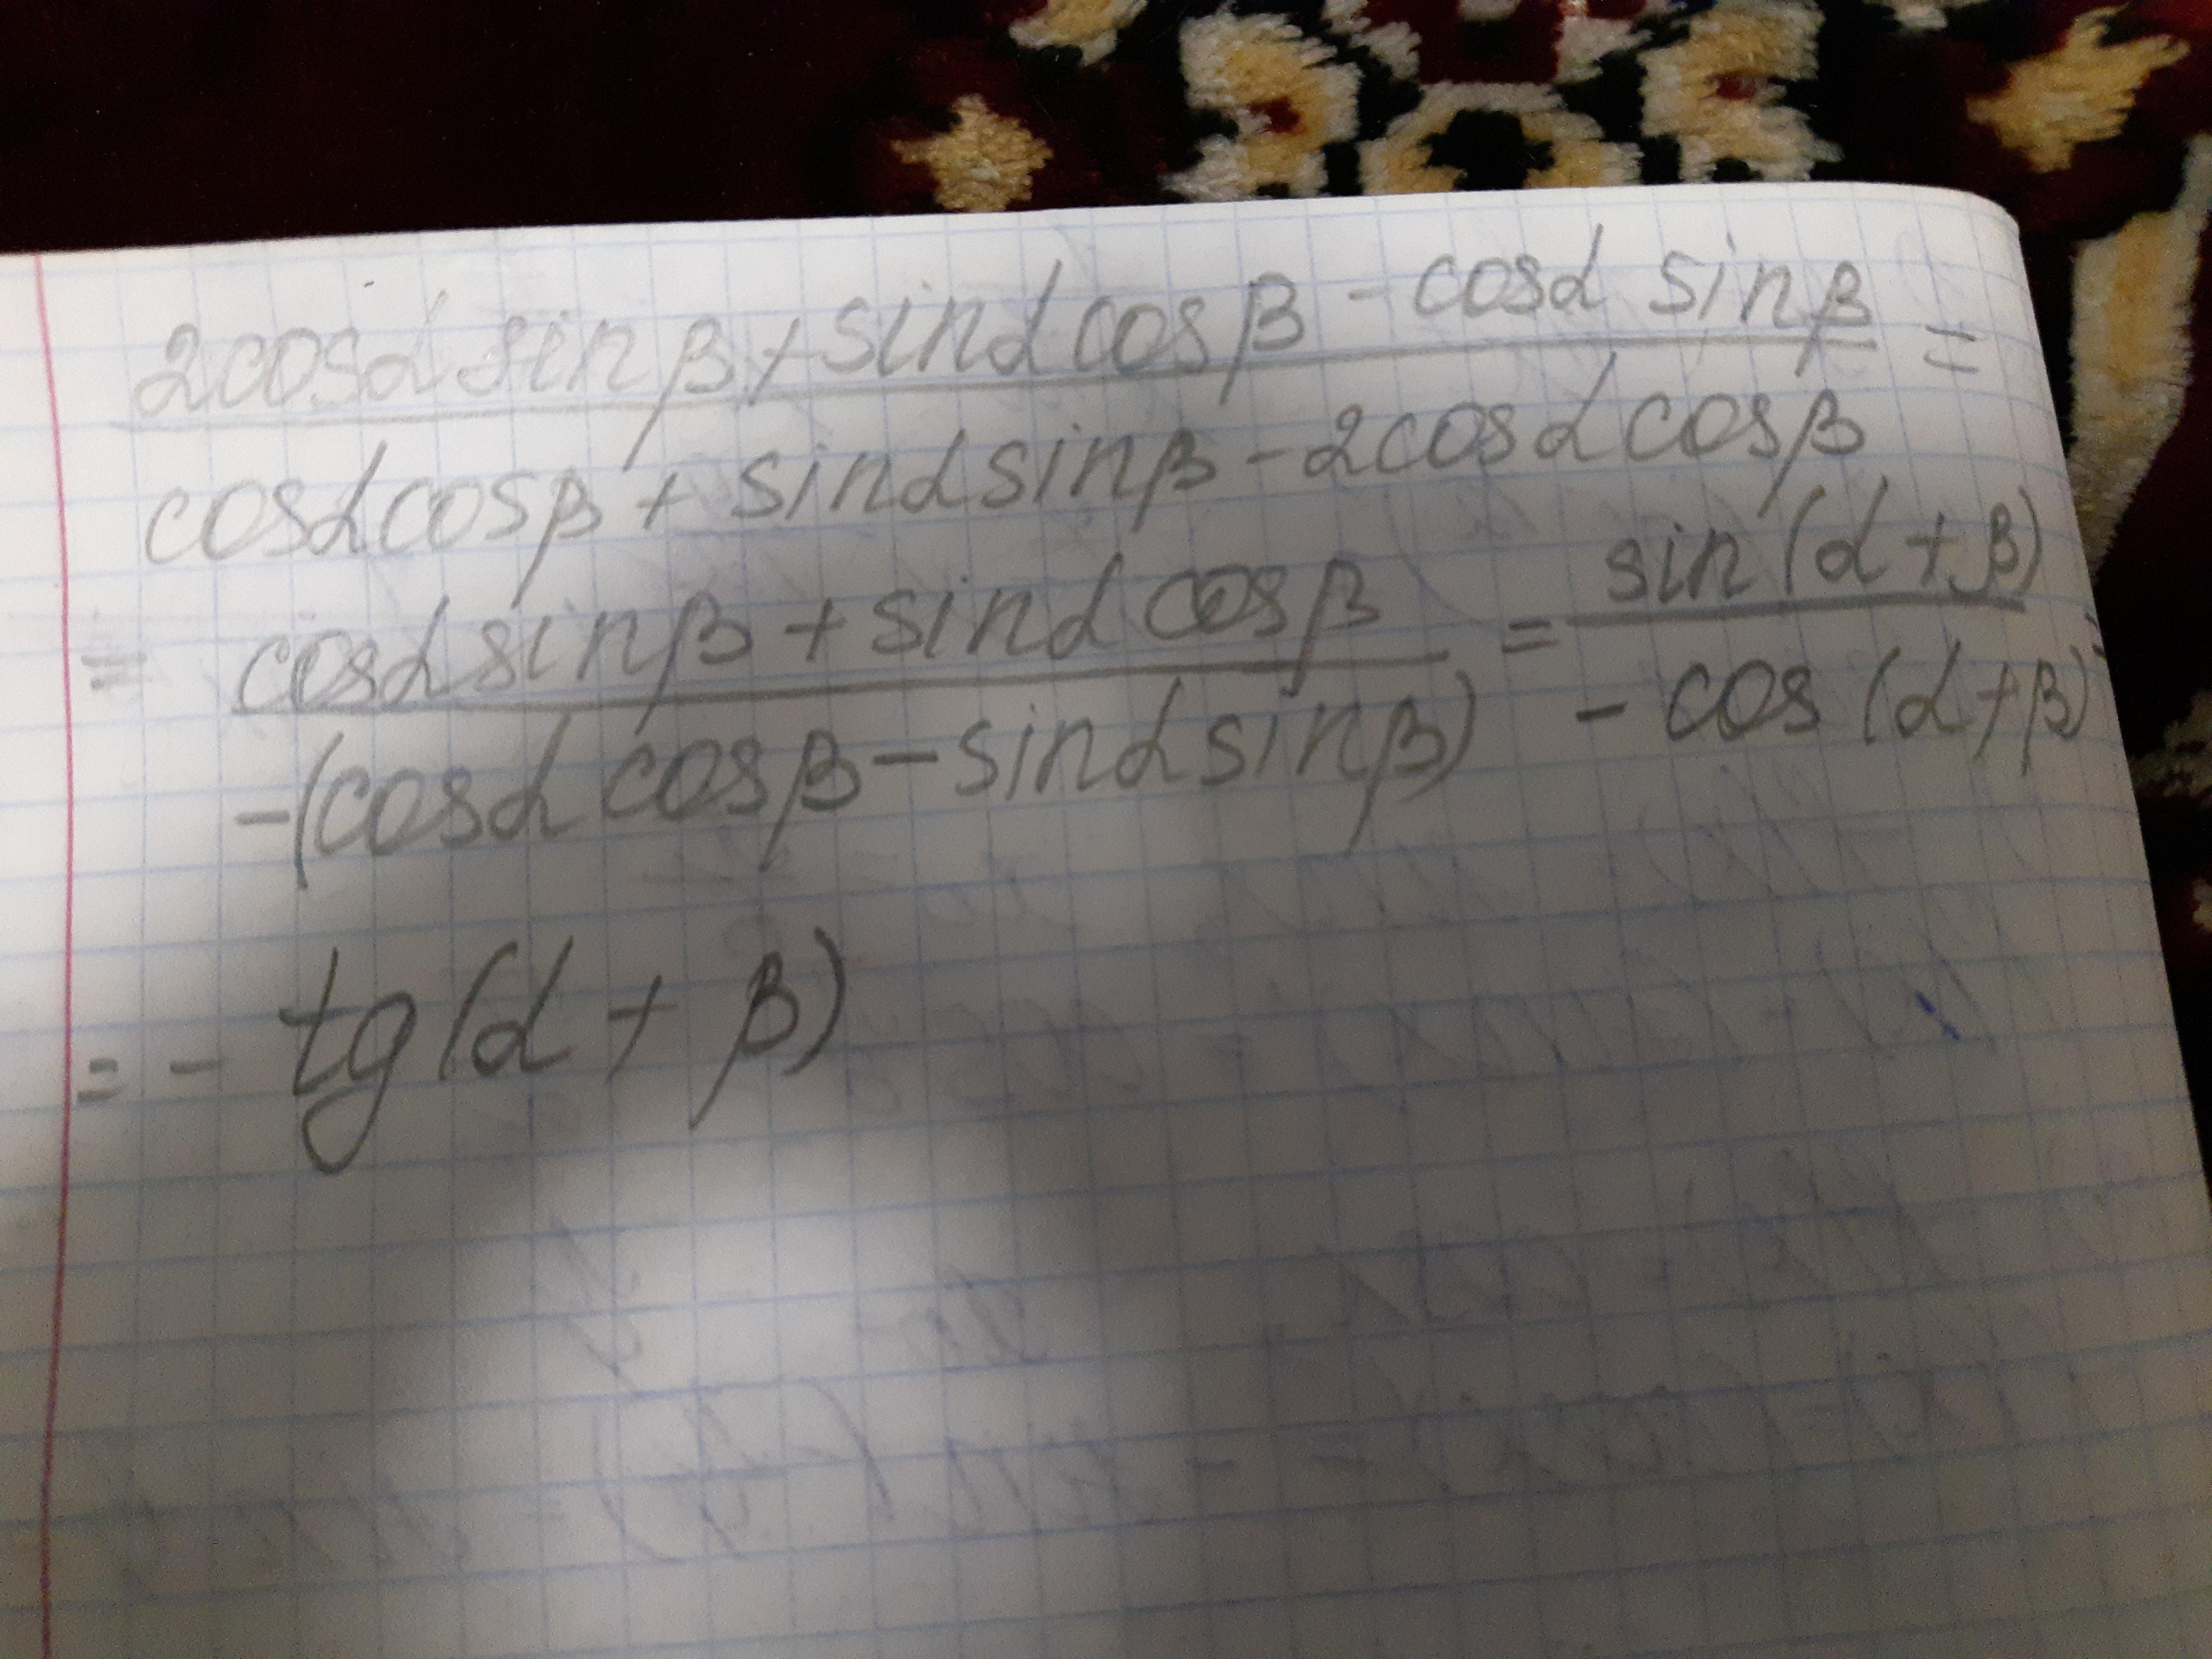 2cosα sinβ + sinα cosβ - cosα sinβ =
cosα cosβ + sinα sinβ - 2cosα cosβ
= cosα sinβ + sinα cosβ = sin(α + β)
-(cosα cosβ - sinα sinβ) - cos(α + β)
= - tg(α + β)